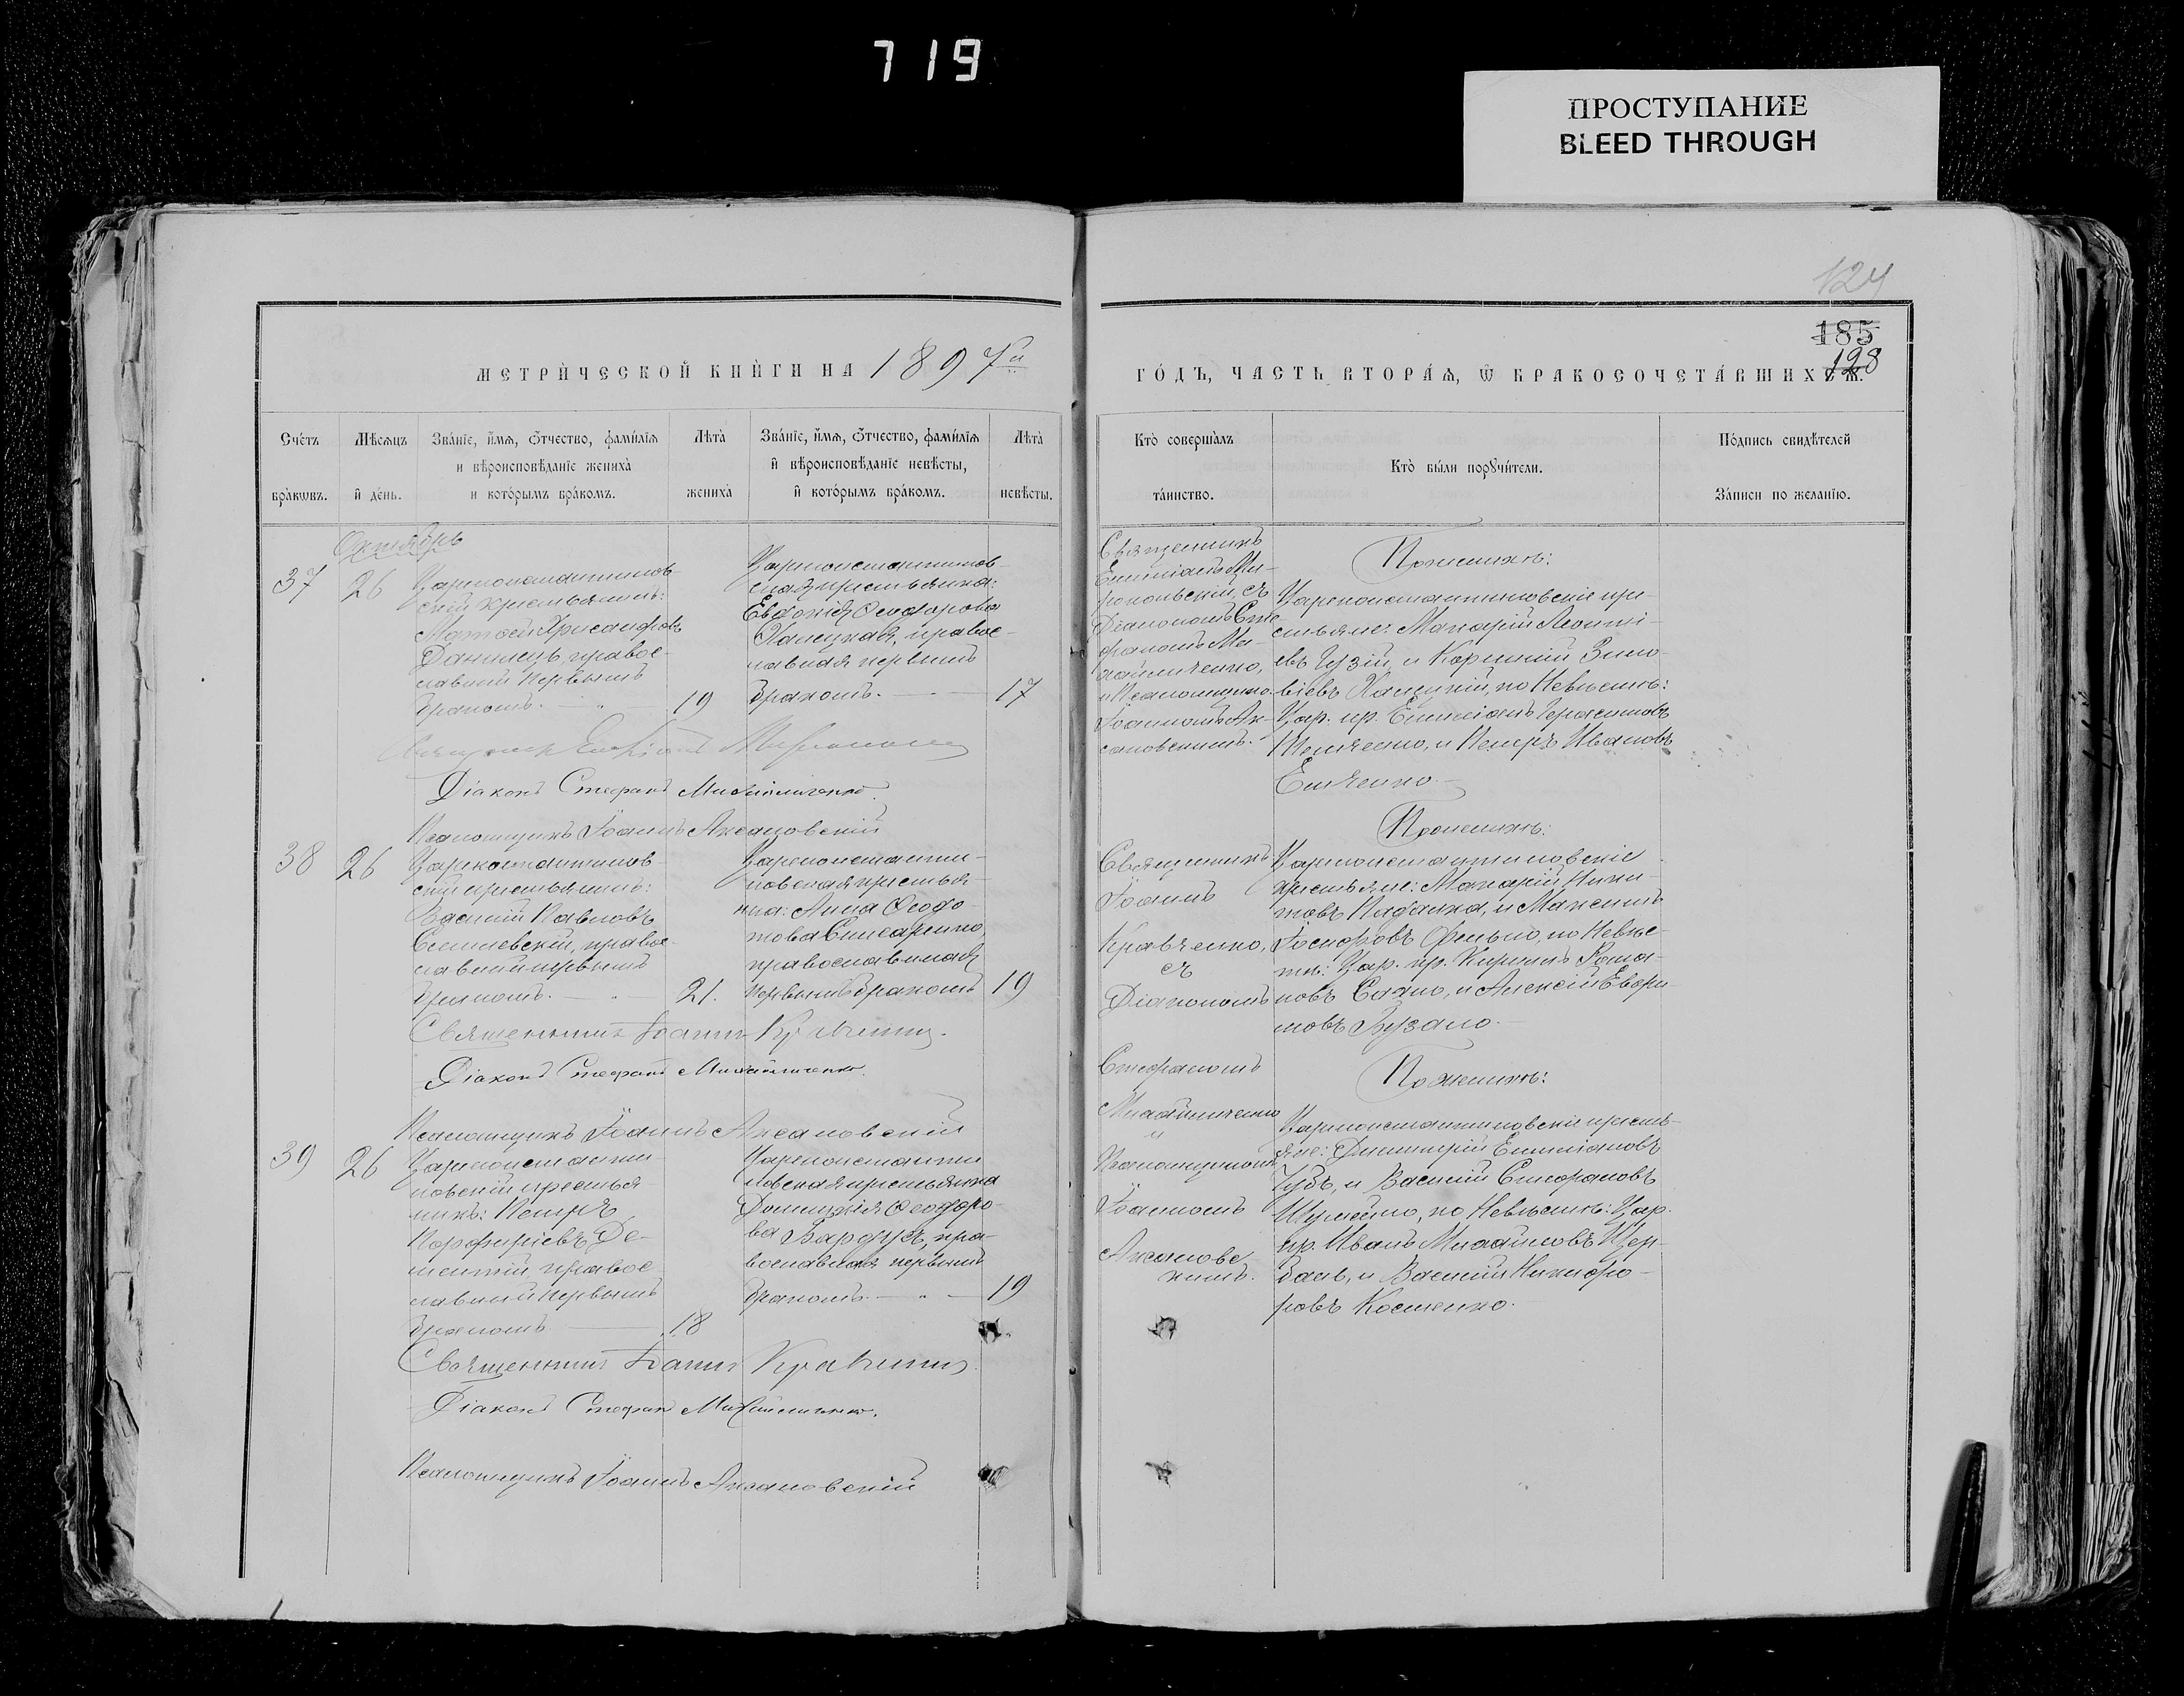 719
ПРОСТУПАНИЕ
BLEED THROUGH
124
185
128
МЕТРИ́ЧЕСКОЙ КНИ́ГИ НА 1897й
ГО́ДЪ, ЧАСТЬ ВТОРА́Ѧ, Ѿ БРАКОСОЧЕТА́ВШИХСѦ.
Сче́тъ
бра́кѡвъ.
Мѣ́сѧцъ
и҆ де́нь.
Зва́нїе, и҆́мѧ, ѻ҆́тчество, фами́лїѧ
и вѣроисповѣ́данїе жениха̀
и кото́рымъ бра́комъ.
Лѣта̀
жениха̀
Зва́нїе, и҆́мѧ, ѻ҆́тчество, фами́лїѧ
и҆ вѣроисповѣ́данїе невѣ́сты,
и҆ кото́рымъ бра́комъ.
Лѣта̀
невѣ́сты.
Кто̀ соверша́лъ
та́инство.
Кто̀ бы́ли порꙋчи́тели.
По́дпись свидѣ́телей
За́писи по жела́нїю.
Октябрь
37
26
Цареконстантинов-
скій крестьянинъ:
Матѳей Хрисанфовъ
Данилецъ, правос-
лавный первымъ
бракомъ. — " — 19
Цареконстантинов-
ская крестьянка:
Евдокія Ѳеодорова
правос-
лавная первымъ
бракомъ. — 17
Священникъ
Емиліанъ Ми-
съ
Діакономъ Сте-
фаномъ Ми-
хайличенко,
и Псаломщико
Іоанномъ Ак-
сановскимъ.
По женихѣ:
Цареконстантиновскіе кре-
стьяне: Макарій Леонті-
евъ Гузій, и Корнилій Зино-
віевъ по Невѣстѣ:
Цар. кр. Емиліанъ Герасимовъ
и Петръ Ивановъ
Священникъ
Діаконъ Стефанъ Михайличенко.
Псаломщикъ Іоаннъ Аксановскій
38
26
Цареконстантинов-
скій крестьянинъ:
Василій Павловъ
правос-
лавный первымъ
бракомъ. — " — 21.
Цареконстанти-
новская крестья-
нка: Анна Ѳеодо-
това Слюсаренко,
православная
первымъ бракомъ 19
Священникъ
Іоаннъ
Кравченко,
съ
Діакономъ
Стефаномъ
Михайличенко
и
Псаломщикомъ
Іоанномъ
Аксановс-
кимъ.
По женихѣ:
Цареконстантиновскіе
крестьяне: Макарій Ники-
товъ и Максимъ
Іосифовъ по Невѣс-
тѣ: Цар. кр. Кириллъ Рома-
новъ и Алексій
Священникъ Іоаннъ Кравченко.
Діаконъ Стефанъ Михайличенко.
Псаломщикъ Іоаннъ Аксановскій
39
26
Цареконстанти-
новскій крестья-
нинъ: Петръ
Порфиріевъ Де-
правос-
лавный первымъ
бракомъ — 18
Цареконстанти-
новская крестьянка
Домникія Ѳеодоро-
ва пра-
вославная первымъ
бракомъ. — " — 19
По женихѣ:
Цареконстантиновскіе кресть-
яне: Димитрій Емиліановъ
Губъ, и Василій Стефановъ
по Невѣстѣ: Цар.
кр. Иванъ Михайловъ Щер-
бань, и Василій Никифо-
ровъ Костенко.
Священникъ Іоаннъ Кравченко
Діаконъ Стефанъ Михайличенко.
Псаломщикъ Іоаннъ Аксановскій